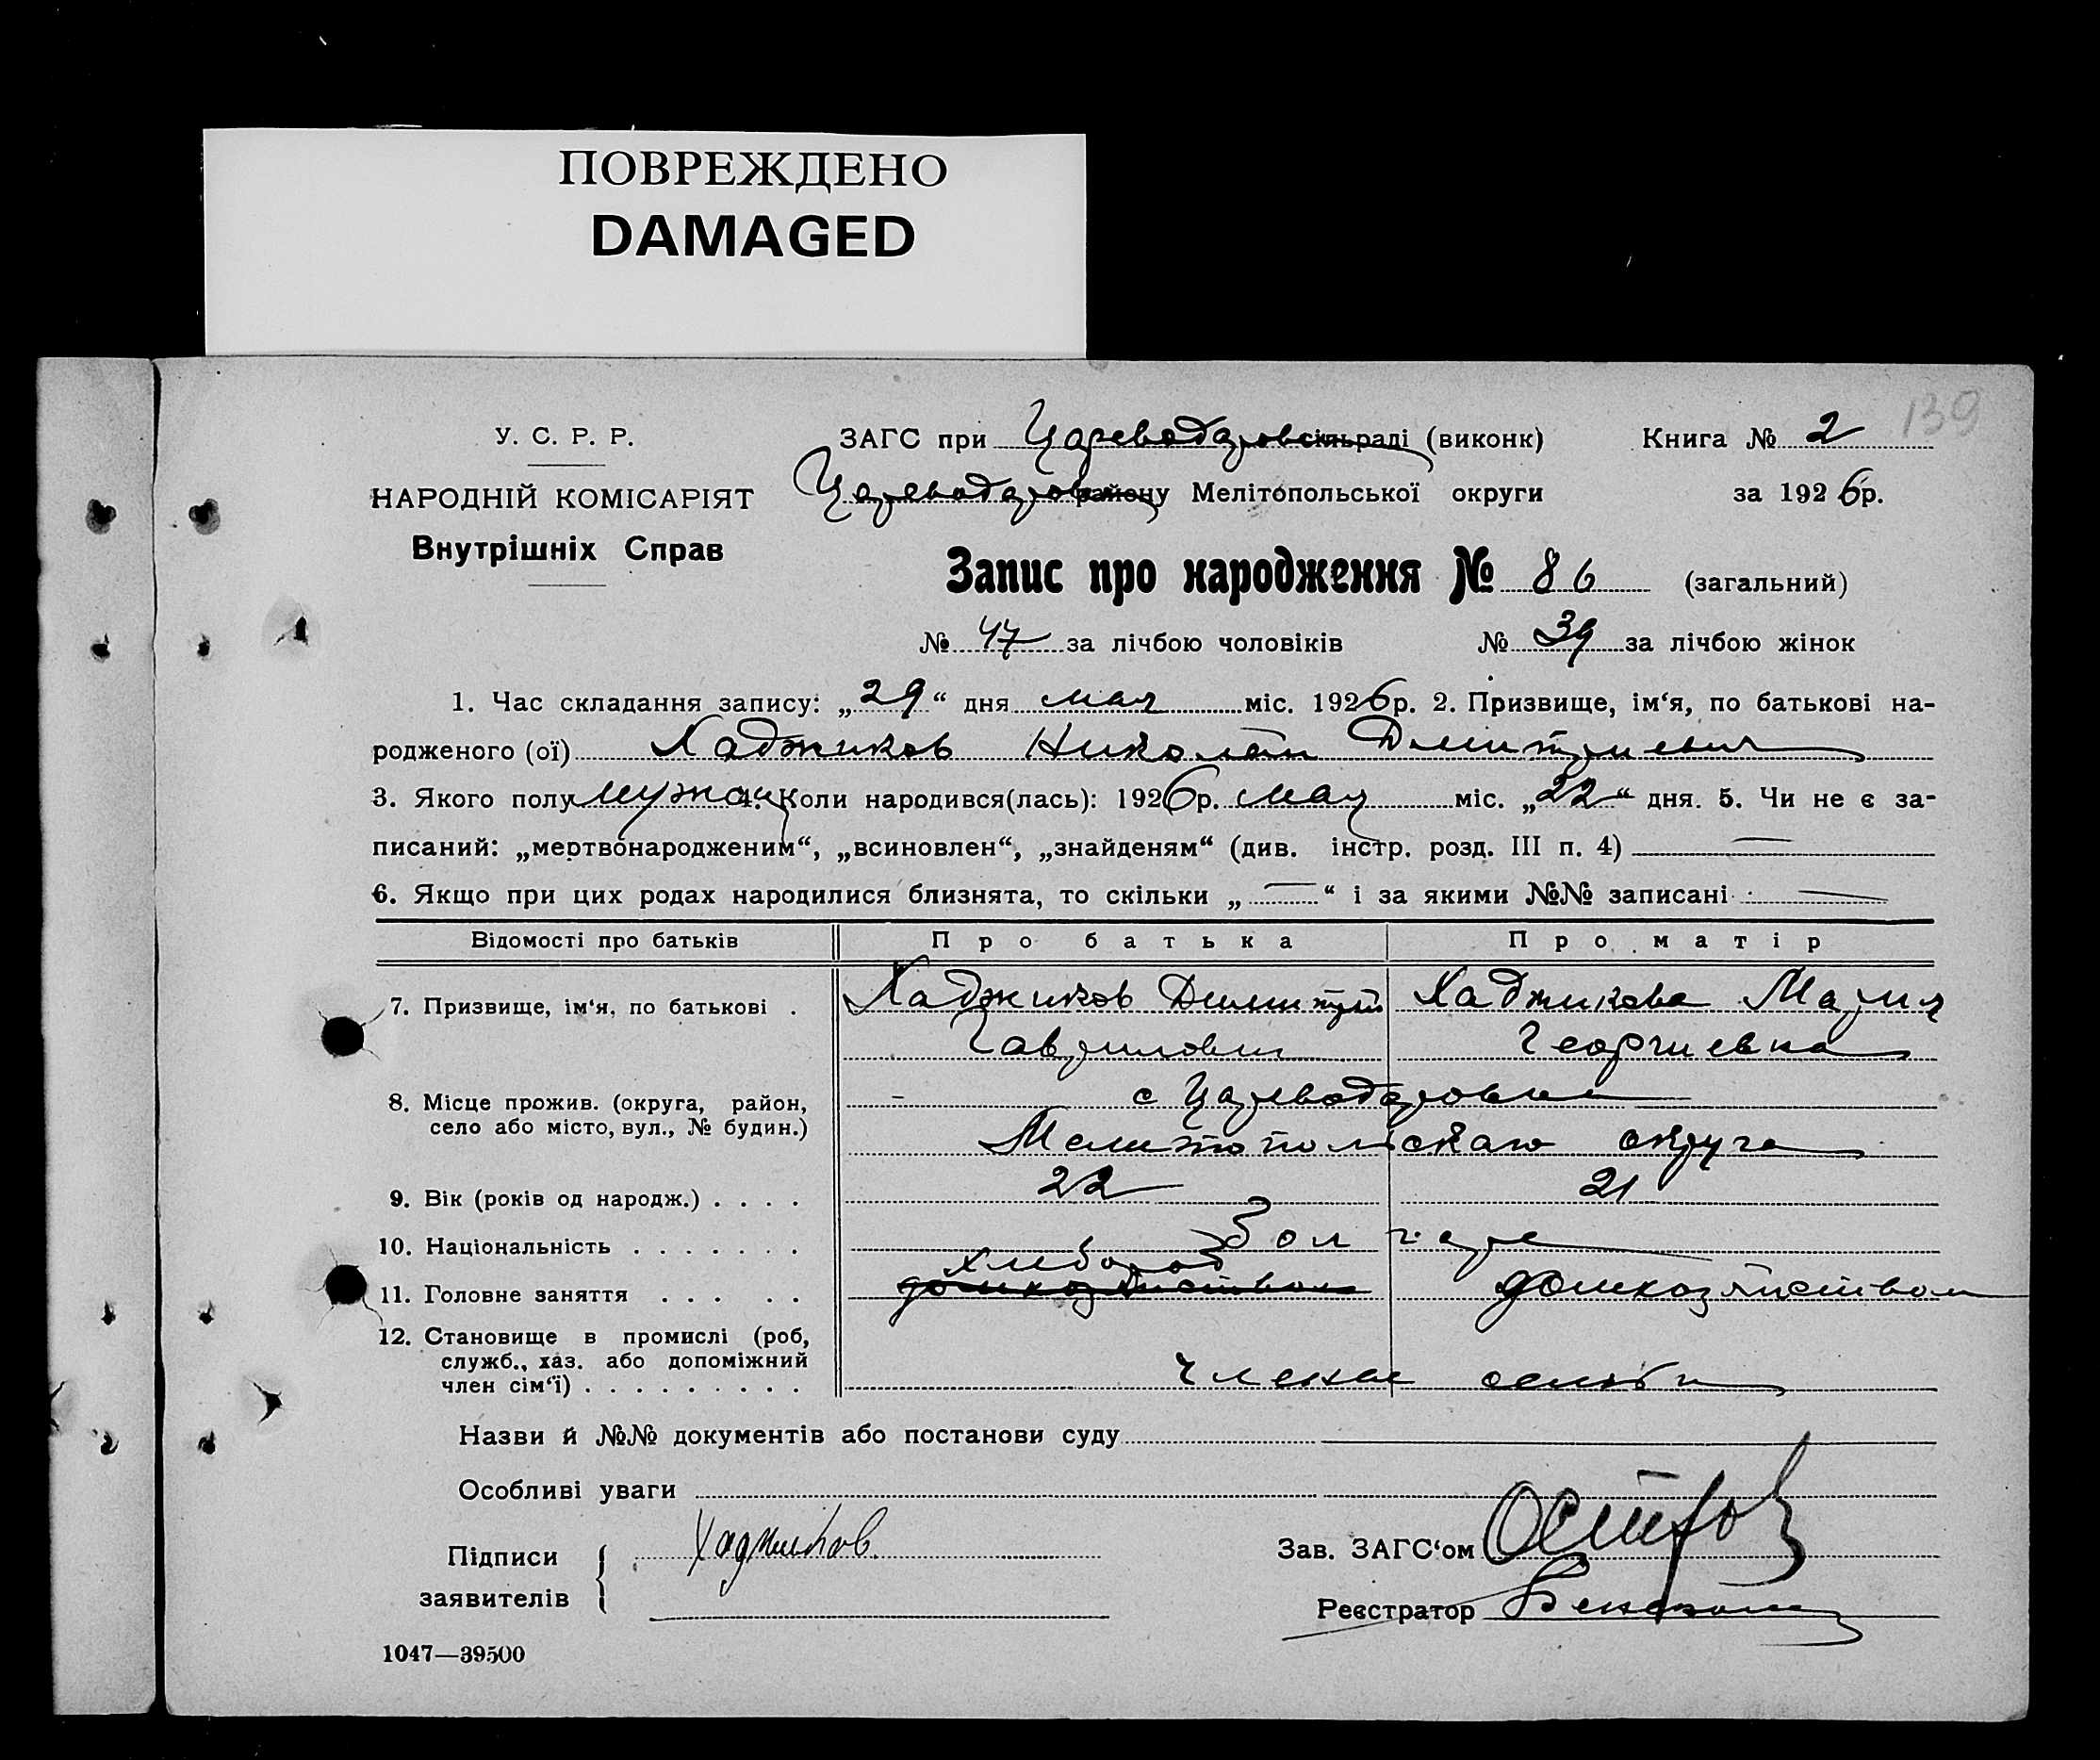 ПОВРЕЖДЕНО
DAMAGED
139
У. С. Р. Р.
НАРОДНІЙ КОМІСАРІЯТ
Внутрішніх Справ
ЗАГС при Цареводаров сільраді (виконк)
Книга № 2
Цареводаров району Мелітопольської округи
за 1926 р.
Запис про народження № 86 (загальний)
№ 47 за лічбою чоловіків № 39 за лічбою жінок
1. Час складання запису: „29“ дня мая міс. 1926 р. 2. Призвище, ім‘я, по батькові на-
родженого (ої) Хаджиков Николай Дмитриевич
3. Якого полу 4. Коли народився(лась): 1926 р. мая міс. „22“ дня. 5. Чи не є за-
писаний: „мертвонародженим“, „всиновлен“, „знайденям“ (див. інстр. розд. III п. 4) —
6. Якщо при цих родах народилися близнята, то скільки „—“ і за якими №№ записані —
Відомості про батьків Про батька Про матір
7. Призвище, ім‘я, по батькові . Хаджиков Димитрий Хаджикова Мария
Гаврилович Георгиевна
8. Місце прожив. (округа, район,
село або місто, вул., № будин.)
с Цареводаровка
Мелитопольскаго округа
9. Вік (років од народж.) . . . . 22 21
10. Національність . . . . . . . Болгаре
11. Головне заняття . . . . . хлебороб домхозяйством домхозяйством
12. Становище в промислі (роб,
служб., хаз. або допоміжний
член сім‘ї) . . . . . . . . . члены семьи
Назви й №№ документів або постанови суду
Особливі уваги
Підписи
заявителів
Хаджиков
Зав. ЗАГС‘ом
Реєстратор
1047—39500